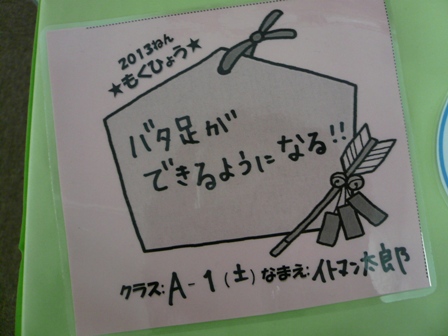 2013ねん
★もくひょう★
バタ足が
できるようになる!!
クラス:A-1(土)なまえ:イトマン太郎